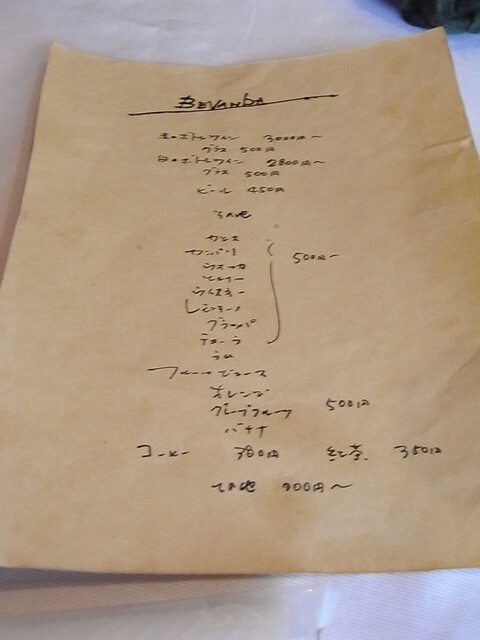 BEVANDA
赤のボトルワイン 3000円〜
グラス 500円
白のボトルワイン 2800円〜
グラス 500円
ビール 450円
その他
カシス
カンパリ 500円〜
ウォッカ
ウイスキー
レモンチーノ
グラッパ
テキーラ
ラム
フルーツジュース
オレンジ
グレープフルーツ 500円
バナナ
コーヒー 380円 紅茶 350円
その他 400円〜